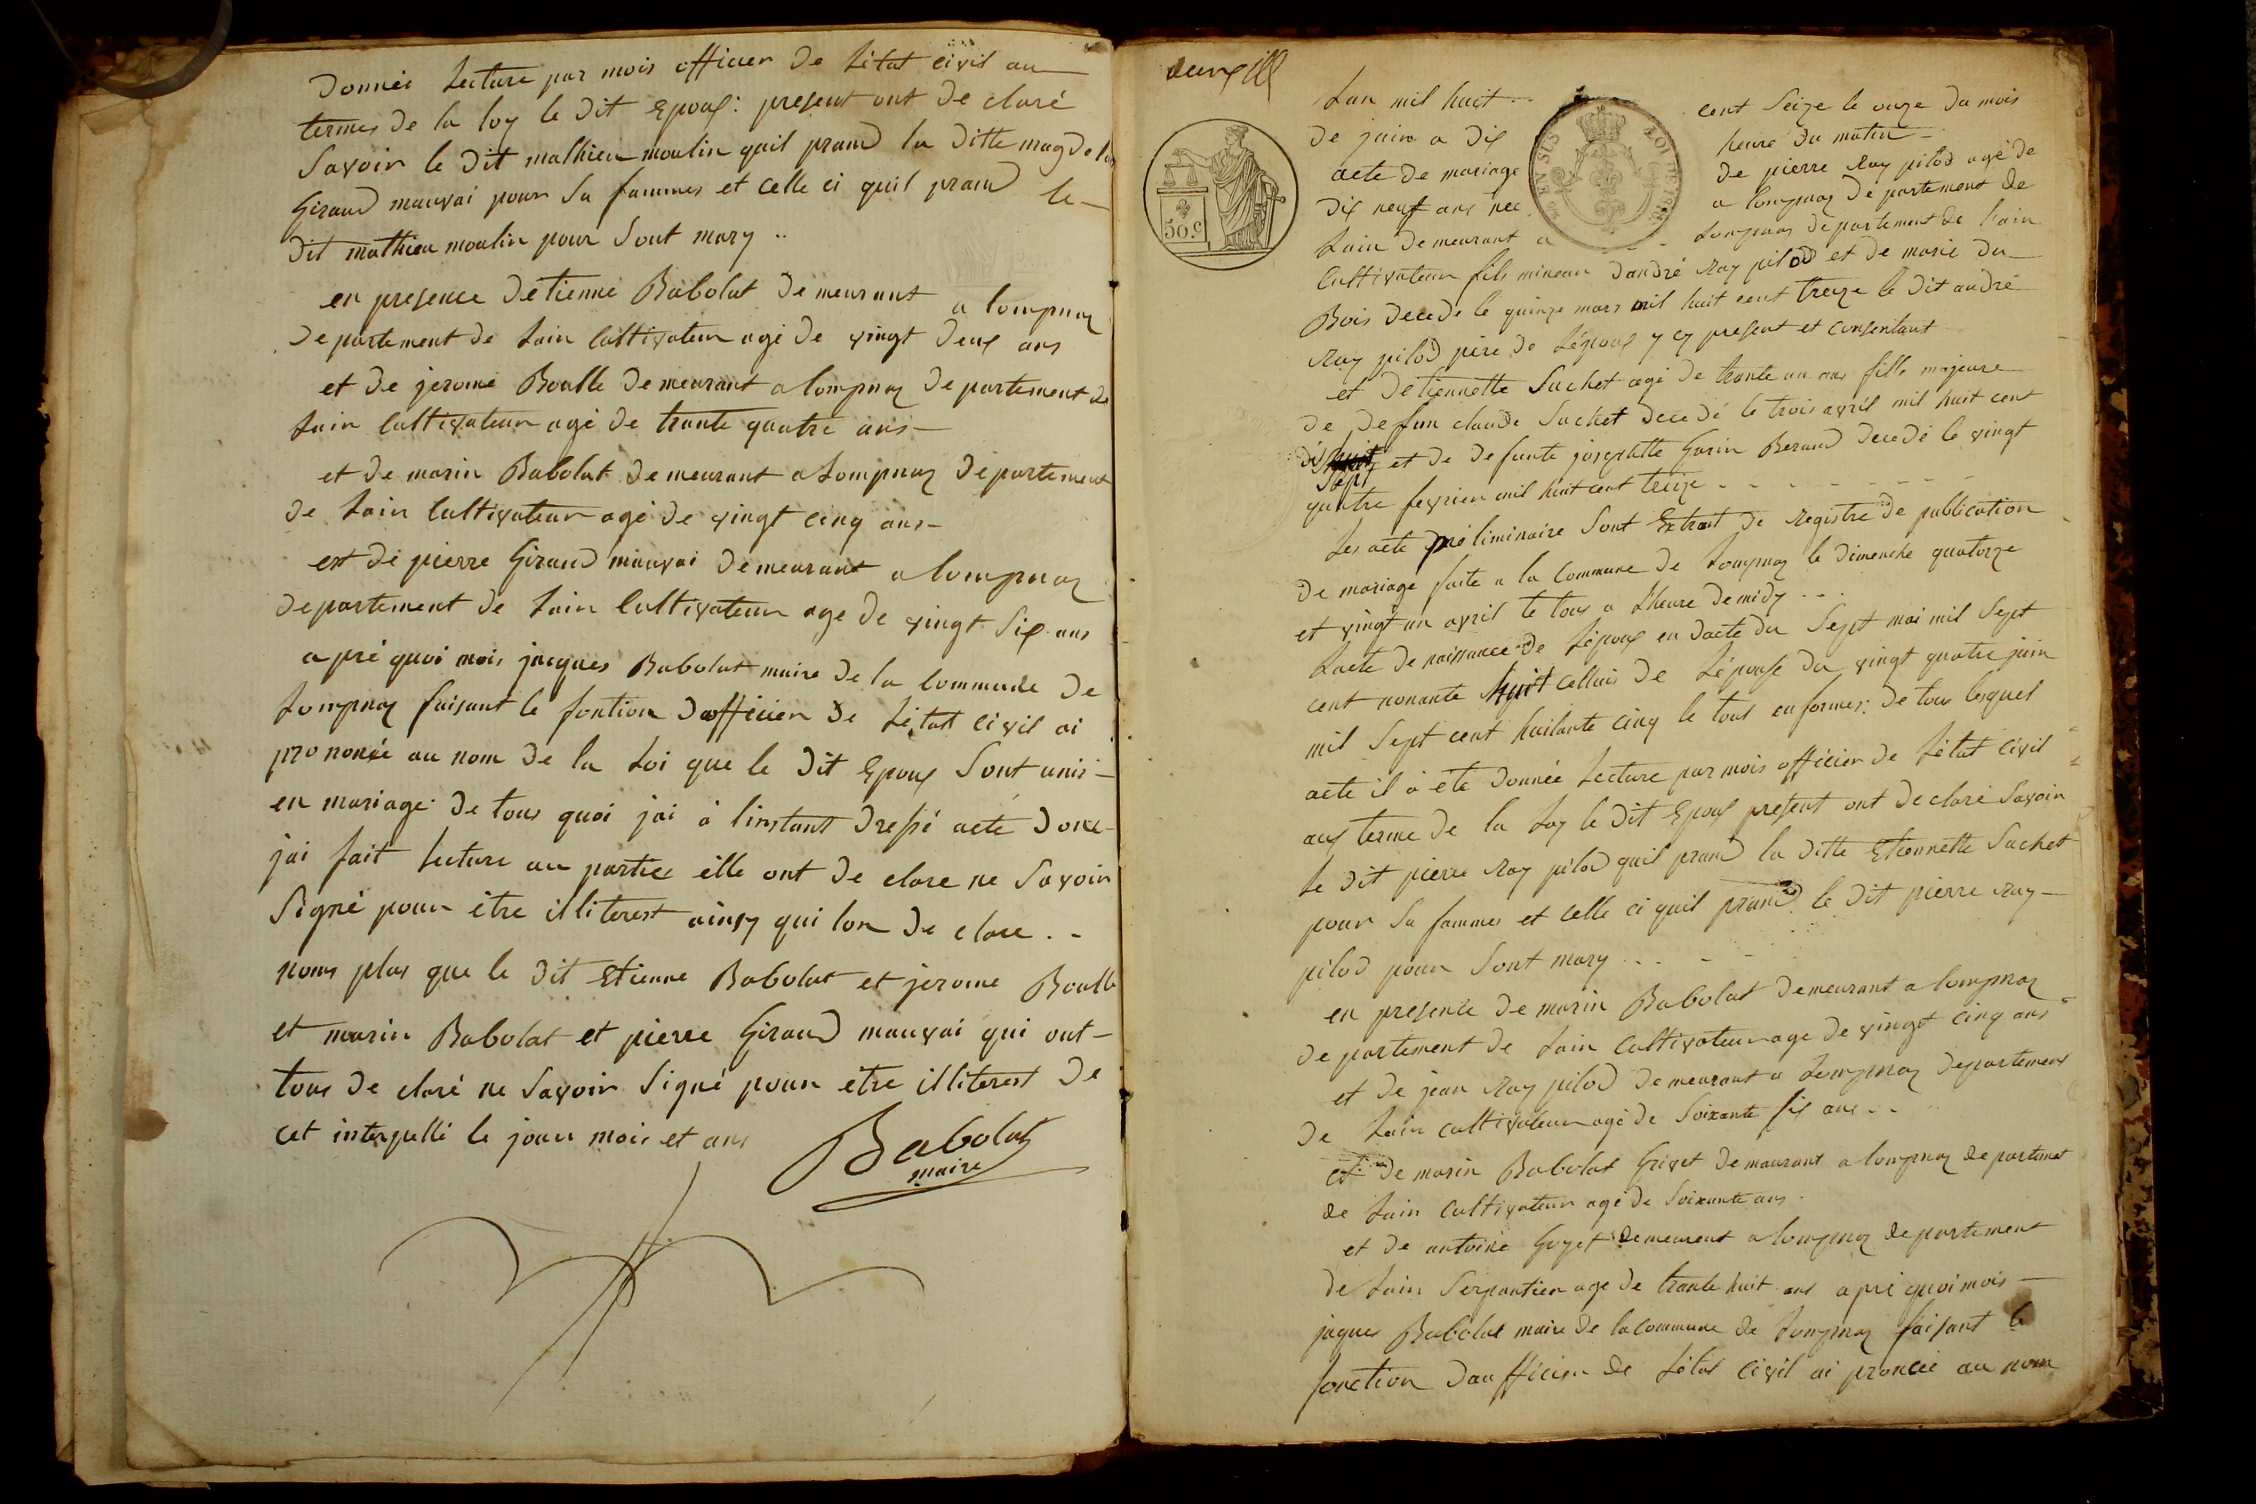 donnée Lecture par mois officier de Létat civil au
termes de la loy le dit Epous: present ont de claré
Savoir le dit mathieu moulin quil prand la ditte magdela
Giraud mauvai pour Sa fammes et celle ci quil prand le
dit mathieu moulin pour Sont mary ..
en presence detienne Babolat demeurant a lompnaz
departement de Lain Cultivateur agé de vingt deux ans
et de jerome Boulle demeurant a lompnaz departement de
Lain Cultivateur agé de trante quatre ans
et de marin Babolat demeurant a Lompnaz departement
de Lain Cultivateur agé de vingt cinq ans
et de pierre Giraud mauvai demeurant a lompnaz
departement de Lain Cultivateur age de vingt Six ans
a pré quoi mois jacques Babolat maire de la Commune de
Lompnaz faisant le fontion dofficier de Létat civil ai
prononcé au nom de la Loi que le dit Epoux Sont unis
en mariage de tous quoi jai a linstant dressé acte donc
jai fait Lecture au partie elle ont de clare ne Savoir
Signé pour être illiterest ainsy qui lon de clare . -
nons plus que le dit Etienne Babolat et jerome Boulle
et marin Babolat et pierre Giraud mauvai qui ont
tous de claré ne Savoir Signé pour etre illiterest de
cet interpellé le jour mois et ans
Babolat
maire
Lan mil huit cent Seize le onze du mois
de juin a dix heure du matin
acte de mariage de pierre Ray pilod agé de
dix neuf ans nee a lompnaz departement de
Lain demeurant a Lompnaz departement de Lain
Cultivateur fils mineur dandré Ray pilod et de marie du
Bois decede le quinze mars mil huit cent treize le dit andré
Ray pilod père de Lépoux y cy present et consentant
et detiennette Suchet agé de trante un ans fille majeure
de defun claude Suchet decedé le trois avril mil huit cent
Sept et de defunte josephtte Garin Beraud decedé le vingt
quatre fevrier mil huit cent treize - - - - -
Les acte préliminaire Sont Extrait de registre de publication
de mariage faite a la Commune de Lompnaz le dimenche quatorze
et vingt un avril le tous a Lheure demidy . . .
Lacte de naissance de Lépoux en dacte du Sept mai mil Sept
cent nonante huit celluis de Lépouse du vingt quatre juin
mil Sept cent huitante cinq le tout en formes: de tous lesquel
acte il a été donnée Lecture par mois officier de Létat civil
aux terme de la Loy le dit Epoux present ont declaré Savoir
Le dit pierre Ray pilod quil prand la ditte Etiennette Suchet
pour Sa fammes et celle ci quil prand le dit pierre Ray
pilod pour Sont mary . . - -
en presence de marin Babolat demeurant a lompnaz
departement de Lain Cultivateur age de vingt cinq ans
et de jean Ray pilod demeurant a Lompnaz departement
de Lain cultivateur agé de Soixante six ans . -
et de marin Babolat Grivet demeurant a lompnaz departemet
de Lain Cultivateur agé de Soixante ans .
et de antoine Goyet demeurent a lompnaz departement
de Lain Serpantier age de trante huit ans a pré quoi mois
jaques Babolat maire de la Commune de Lompnaz faisant le
fonction dau fficier de Létat civil ai proncée au nom
50.c